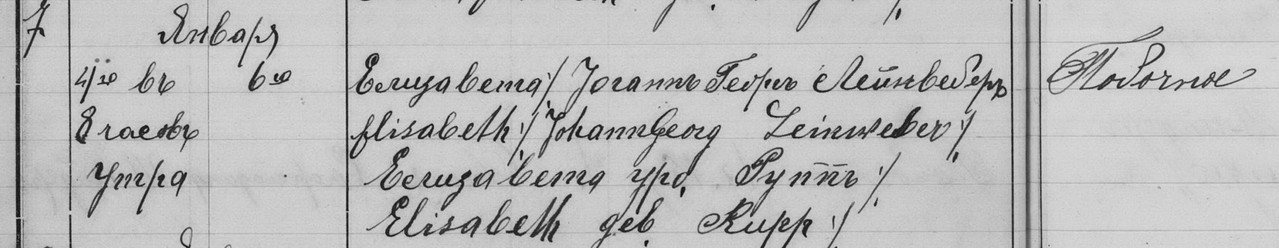 7 Января
4го въ 6го Елизавета:/ Іоганнъ Георгъ Лейнвеберъ Побочное
8 часовъ Elisabeth:/ Johann Georg Leinweber:/
Утра Елизавета уро. Руппъ:/
Elisabeth geb Rupp:/